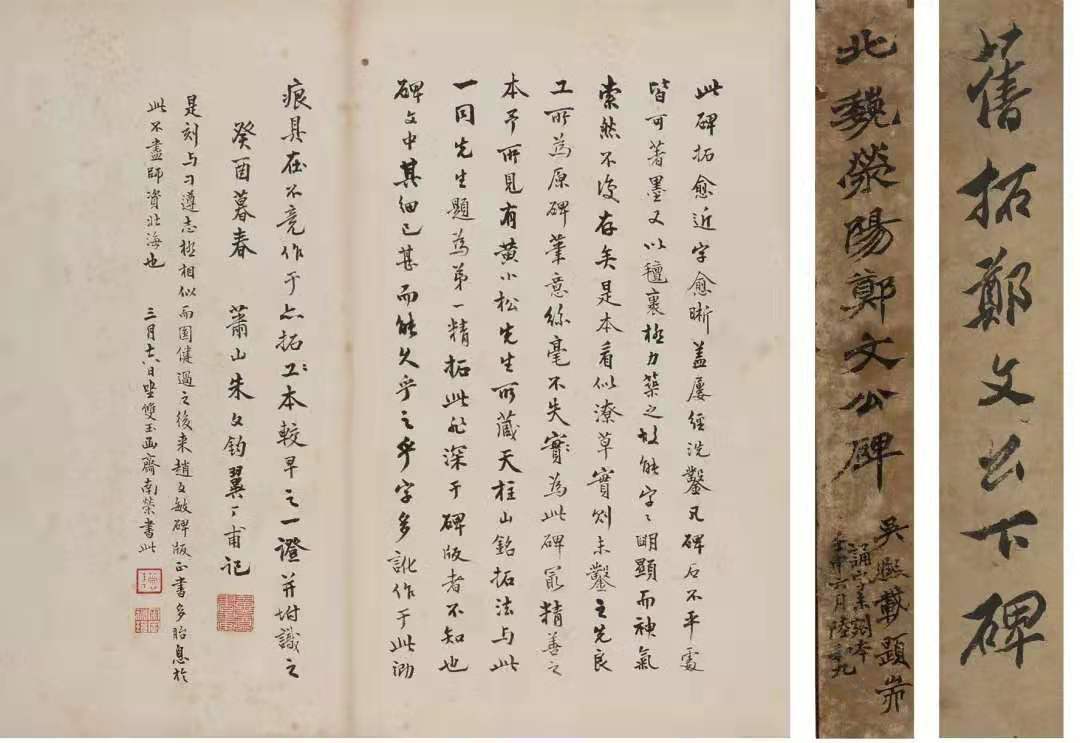 舊拓鄭文公下碑
北魏滎陽鄭文公碑
吳熙載題耑
誦字未剜本
壬申六月陸九
此碑拓愈近字愈晰蓋屢經洗鑿凡碑石不平處
皆可著墨又以氊裹極力築之故能字〻明顯而神氣
索然不復存矣是本看似潦草實則未鑿之先良
工所為原碑筆意絲毫不失實為此碑最精善之
本予所見有黃小松先生所藏天柱山銘拓法与此
一同先生題為第一精拓此非深于碑版者不知也
碑文中其細已甚而能久乎之乎字多訛作于此泐
痕具在不竟作于亦拓工本較早之一證并坿識之
癸酉暮春 蕭山朱文鈞翼厂甫記
是刻与刁遵志極相似而圓健過之後来趙文敏碑版正書多胎息於
此不盡師資北海也 三月十六日坐雙玉凾齋南榮書此